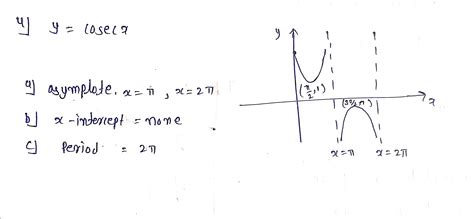 4] y = cosec x
a] asymptote. x = π , x = 2π
b] x-intercept = none
c] Period = 2π
y
(π/2, 1)
x
x = π
x = 2π